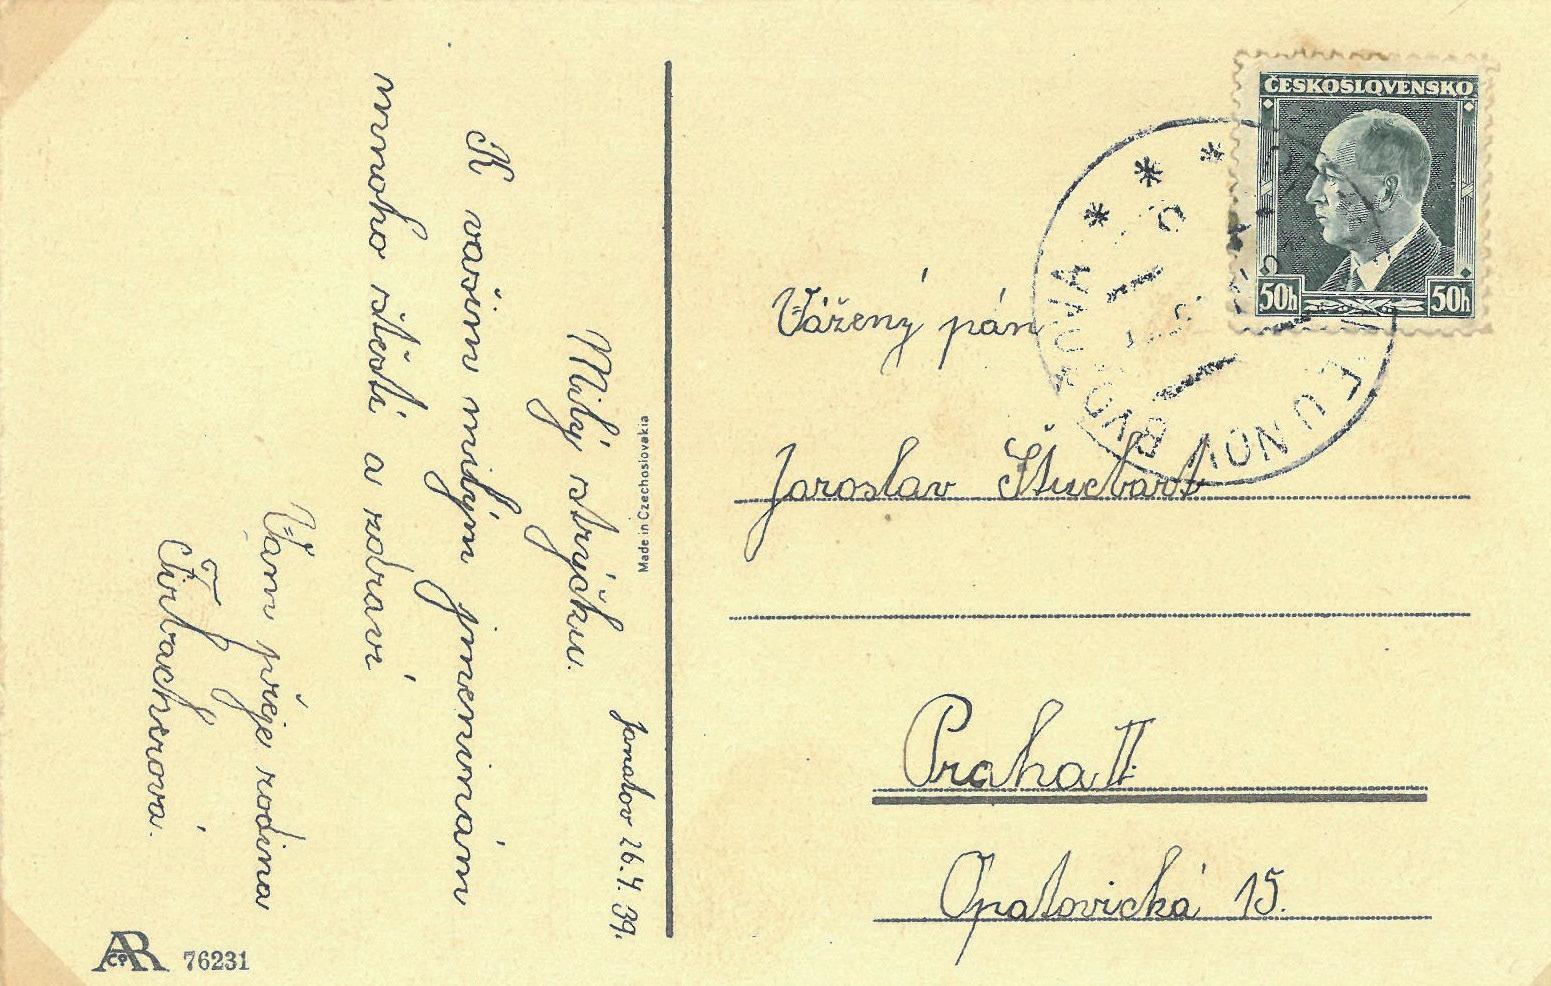 Janatov 26.4.39.
Milý strýčku.
K vašim milým jmeninám
mnoho štěstí a zdraví
Vám přeje rodina
Firbacherova.
Made in Czechoslovakia
AR
CP
76231
ČESKOSLOVENSKO
50h 50h
Vážený pán
Jaroslav
Praha II.
Opatovická 15.